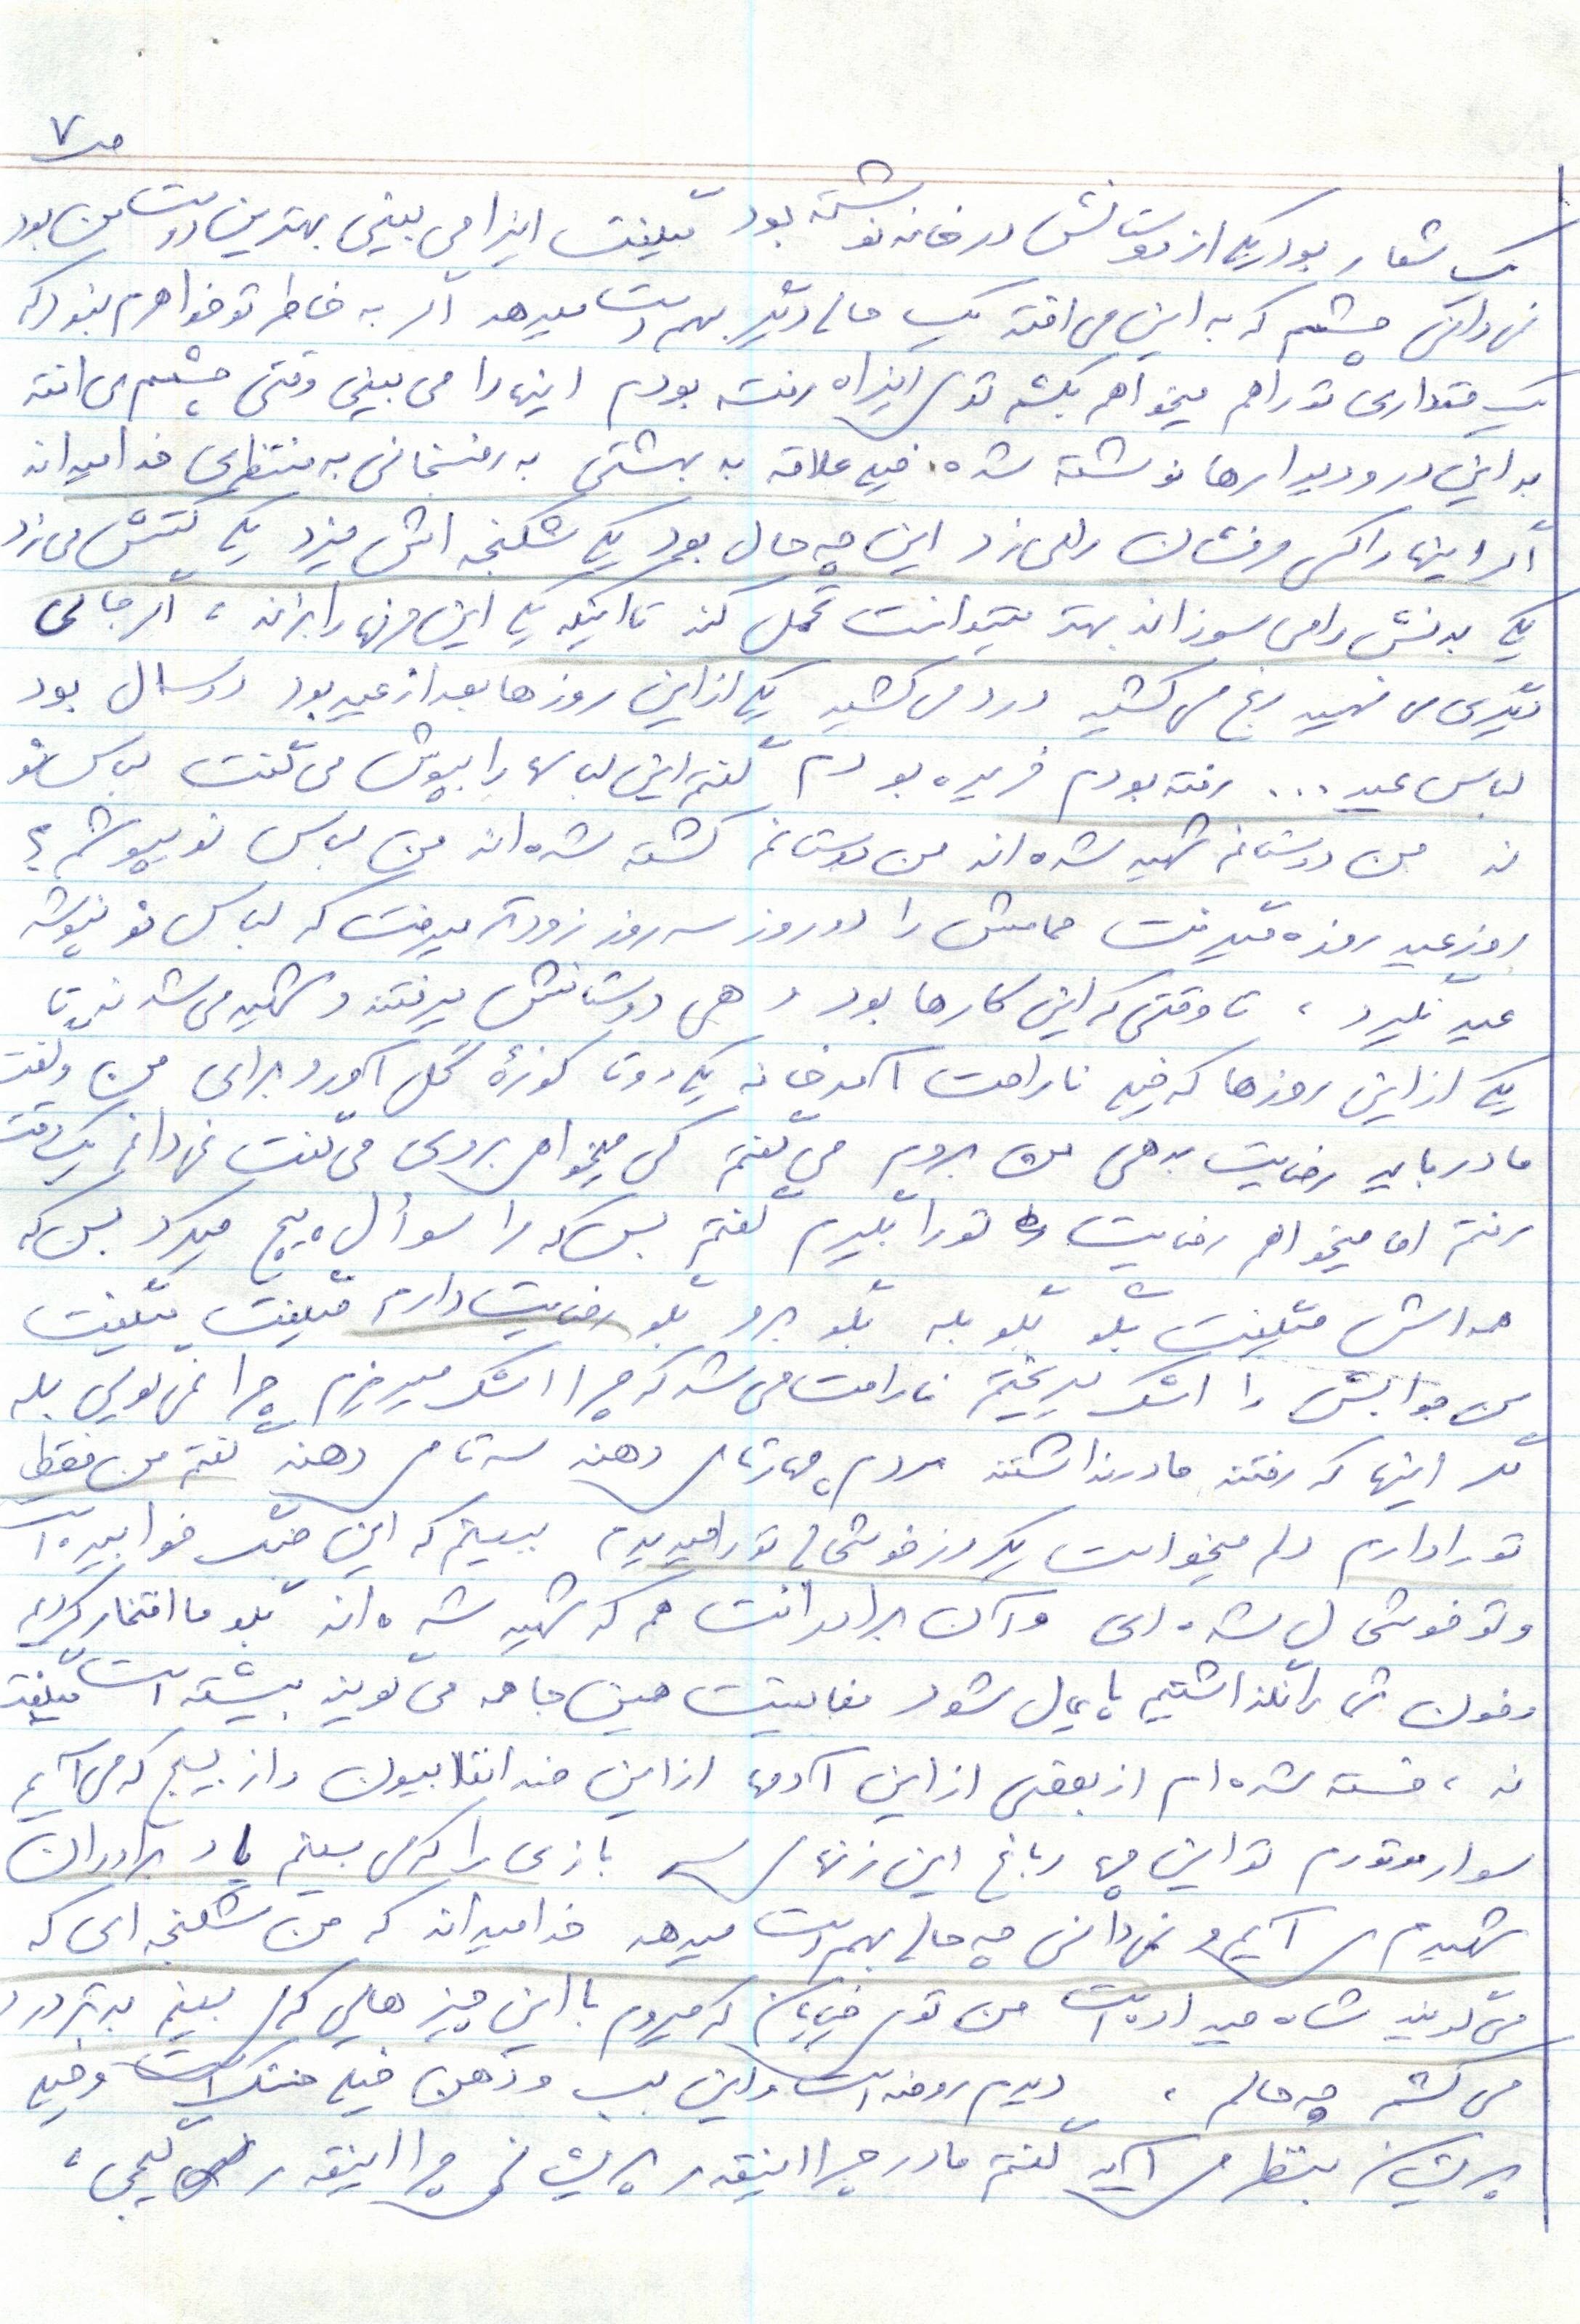 ص ۷
یک شعار بود یکی از دوستانش در خانه نوشته بود میگفت اینرا می بینی بهترین دوست من بود
نمی دانی چشمم که به این می افتد یک حالی دیگر بهم دست میدهد اگر به خاطر تو خواهرم نبود که
یک مقداری تو را هم میخواهم بکشه توی اینراه رفته بودم اینها را می بینی وقتی چشمم می افتد
به این در و دیوارها نوشته شده. خیلی علاقه به بهشتی به رفسنجانی به منتظری خدا میداند
اگر اینها را کسی حرفشان را می زد این چه حال بود یکی شکنجه اش میزد یکی کتکش می زد
یکی بدنش را می سوزاند بهتر میتوانست تحمل کند تا اینکه یکی این حرفها را بزند ، اگر جائی
دیگری می فهمید رنج می کشید درد می کشید یکی از این روزها بعد از عید بود دو سال بود
لباس عید ... رفته بودم خریده بودم گفتم این لباسها را بپوش می گفت لباس نو
نه من دوستانم شهید شده اند من دوستانم کشته شده اند من لباس نو بپوشم ؟
روز عید روزه میگرفت حمامش را دو روز سه روز زودتر میرفت که لباس نو نپوشد
عید نگیرد ، تا وقتی که این کارها بود و هی دوستانش میرفتند و شهید می شدند تا
یکی از این روزها که خیلی ناراحت آمد خانه یکی دو تا کوزهٔ گل آورد برای من و گفت
مادر باید رضایت بدهی من بروم می گفتم کی میخواهی بروی می گفت نمی دانم یک وقت
رفتم اما میخواهم رضایت تو را بگیرم گفتم بس که مرا سوأل پیچ میکرد بس که
همه اش میگفت بگو بگو بله بگو برو بگو رضایت دارم میگفت میگفت
من جوابش را اشک میریختم ناراحت می شد که چرا اشک میریزم چرا نمی گوئی بله
مگر اینها که رفتند مادر نداشتند مردم چهار تا می دهند سه تا می دهند گفتم من فقط
تو را دارم دلم میخواست یکروز خوشحالی تو را میدیدم ببینم که این جنگ خوابیده است
و تو خوشحال شده ای و آن برادرانت هم که شهید شده اند بگو ما افتخار کردیم
و خون شما را نگذاشتیم پایمال شود فعالیت همین جا همه می گویند بیشتر است میگفت
نه ، خسته شده ام از بعضی از این آدمها از این ضد انقلابیون و از بسیج که می آیم
سوار موتورم تو این چهار باغ این زنهای بازی را که می بینم یاد برادران
شهیدم می آیم و نمی دانی چه حالی بهم دست میدهد خدا میداند که من شکنجه ای که
می گویند شاه میداده است من توی خیابان که میروم با این چیزهایی که می بینم بدتر درد
می کشم چه حالم ، دیدم روضه است و این لب و دهن خیلی خشک است و خیلی
پریشان بنظر می آید گفتم مادر چرا اینقدر پریشانی چرا اینقدر گیجی ،